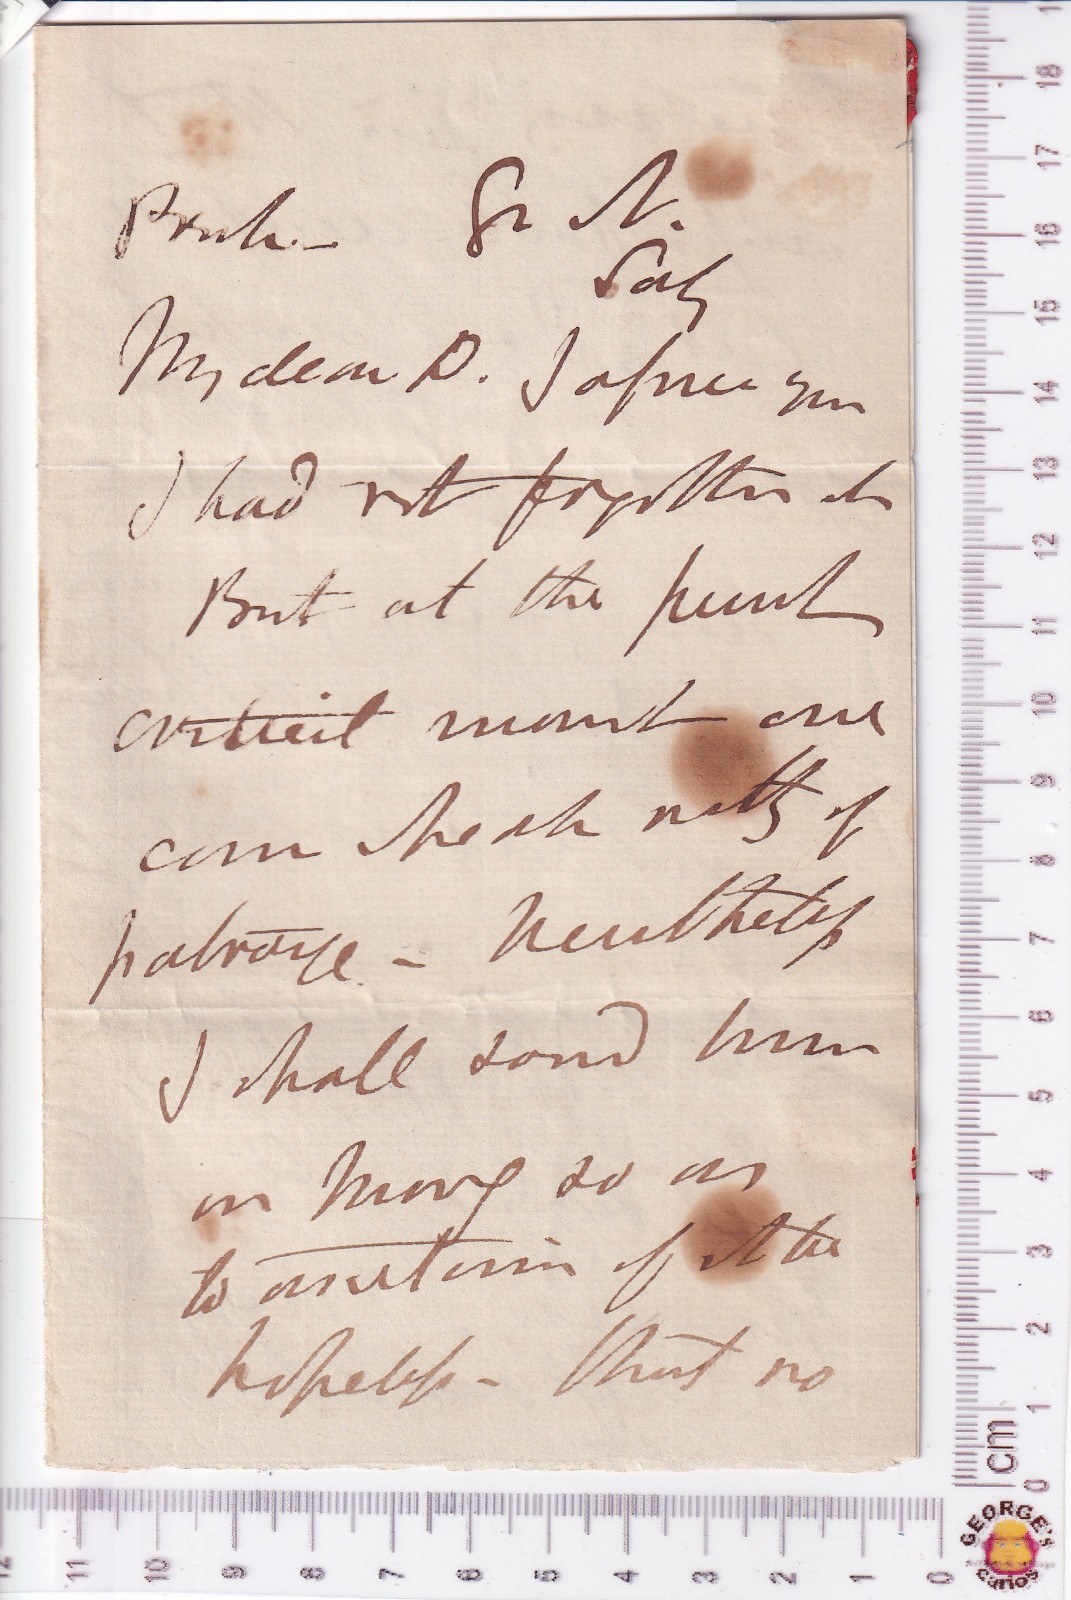 My dear D. I assure you
I had not forgotten it
But at the present
critical moment one
can speak not of
patronage - Nevertheless
I shall send him
on so as
to ascertain if it be
hopeless - that no
18
17
16
15
14
13
12
11
10
9
8
7
6
5
4
3
2
1
0
cm
12 11 10 9 8 7 6 5 4 3 2 1 0
GEORGE'S
curios